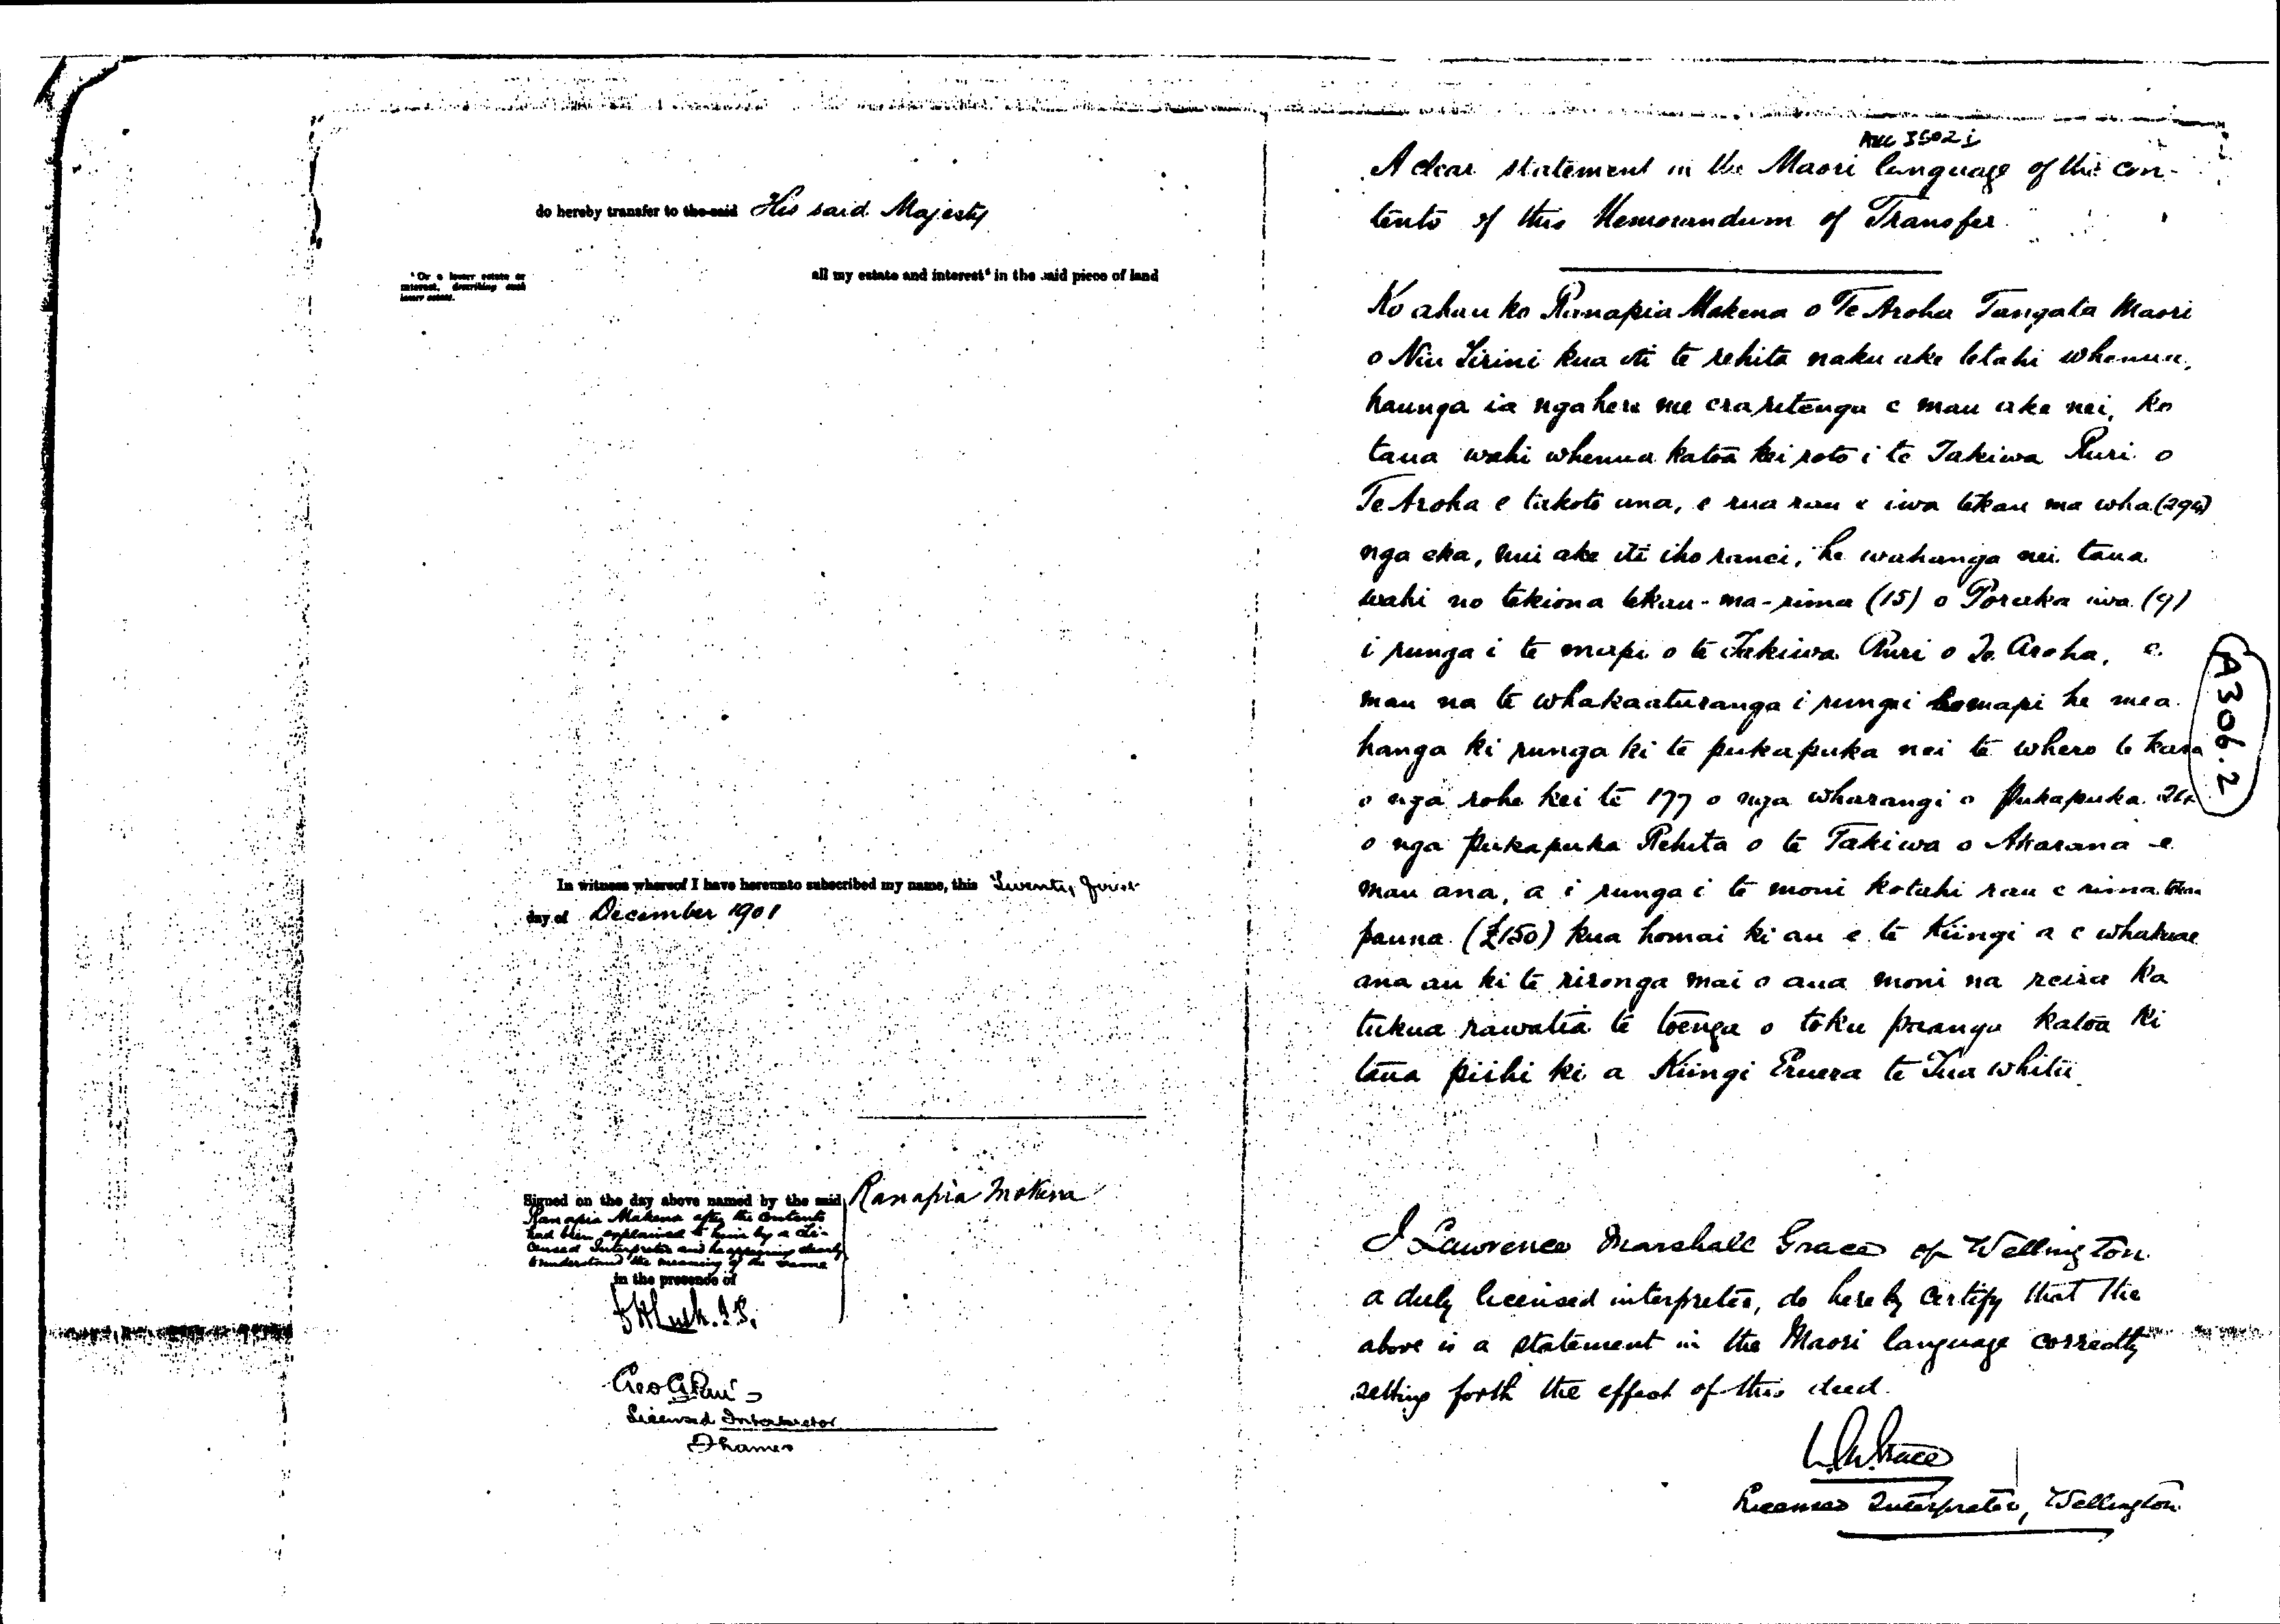 do hereby transfer to the said His said Majesty
all my estate and interest* in the said piece of land
* Or a lesser estate or
interest, describing such
lesser estate.
In witness whereof I have hereunto subscribed my name, this Twenty first
day of December 1901
Signed on the day above named by the said Ranapia Mokena
Ranapia Makena after the contents
had been explained to him by a Li-
censed Interpreter and he appearing clearly
to understand the meaning of the same
in the presence of
Licensed Interpreter
Thames
A clear statement in the Maori language of the con-
tents of this Memorandum of Transfer.
Ko ahau ko Ranapia Makena o Te Aroha Tangata Maori
o Niu Tirini kua oti te rehita naku ake tetahi whenua,
haunga ia nga here me era ritenga e mau ake nei, ko
taua wahi whenua katoa kei roto i te Takiwa Ruri o
Te Aroha e takoto ana, e rua rau e iwa tekau ma wha (294)
nga eka, nui ake iti iho ranei, he wahanga nei taua
wahi no tekiona tekau-ma-rima (15) o Poraka iwa (9)
i runga i te mapi o te Takiwa Ruri o Te Aroha, e
mau na te whakaaturanga i runga i te mapi he mea
hanga ki runga ki te pukapuka nei te whero te kara
o nga rohe kei te 177 o nga wharangi o Pukapuka
o nga Pukapuka Rehita o te Takiwa o Akarana e
mau ana, a i runga i te moni kotahi rau e rima tekau
pauna (£150) kua homai ki au e te Kiingi a e whakaae
ana au ki te rironga mai o aua moni na reira ka
tukua rawatia te toenga o toku paanga katoa ki
taua piihi ki a Kiingi Eruera te Tua whitu
I Lawrence Marshall Grace of Wellington
a duly licensed interpreter, do hereby certify that the
above is a statement in the Maori language correctly
setting forth the effect of this deed.
L.M. Grace
Licensed Interpreter, Wellington
A306.2